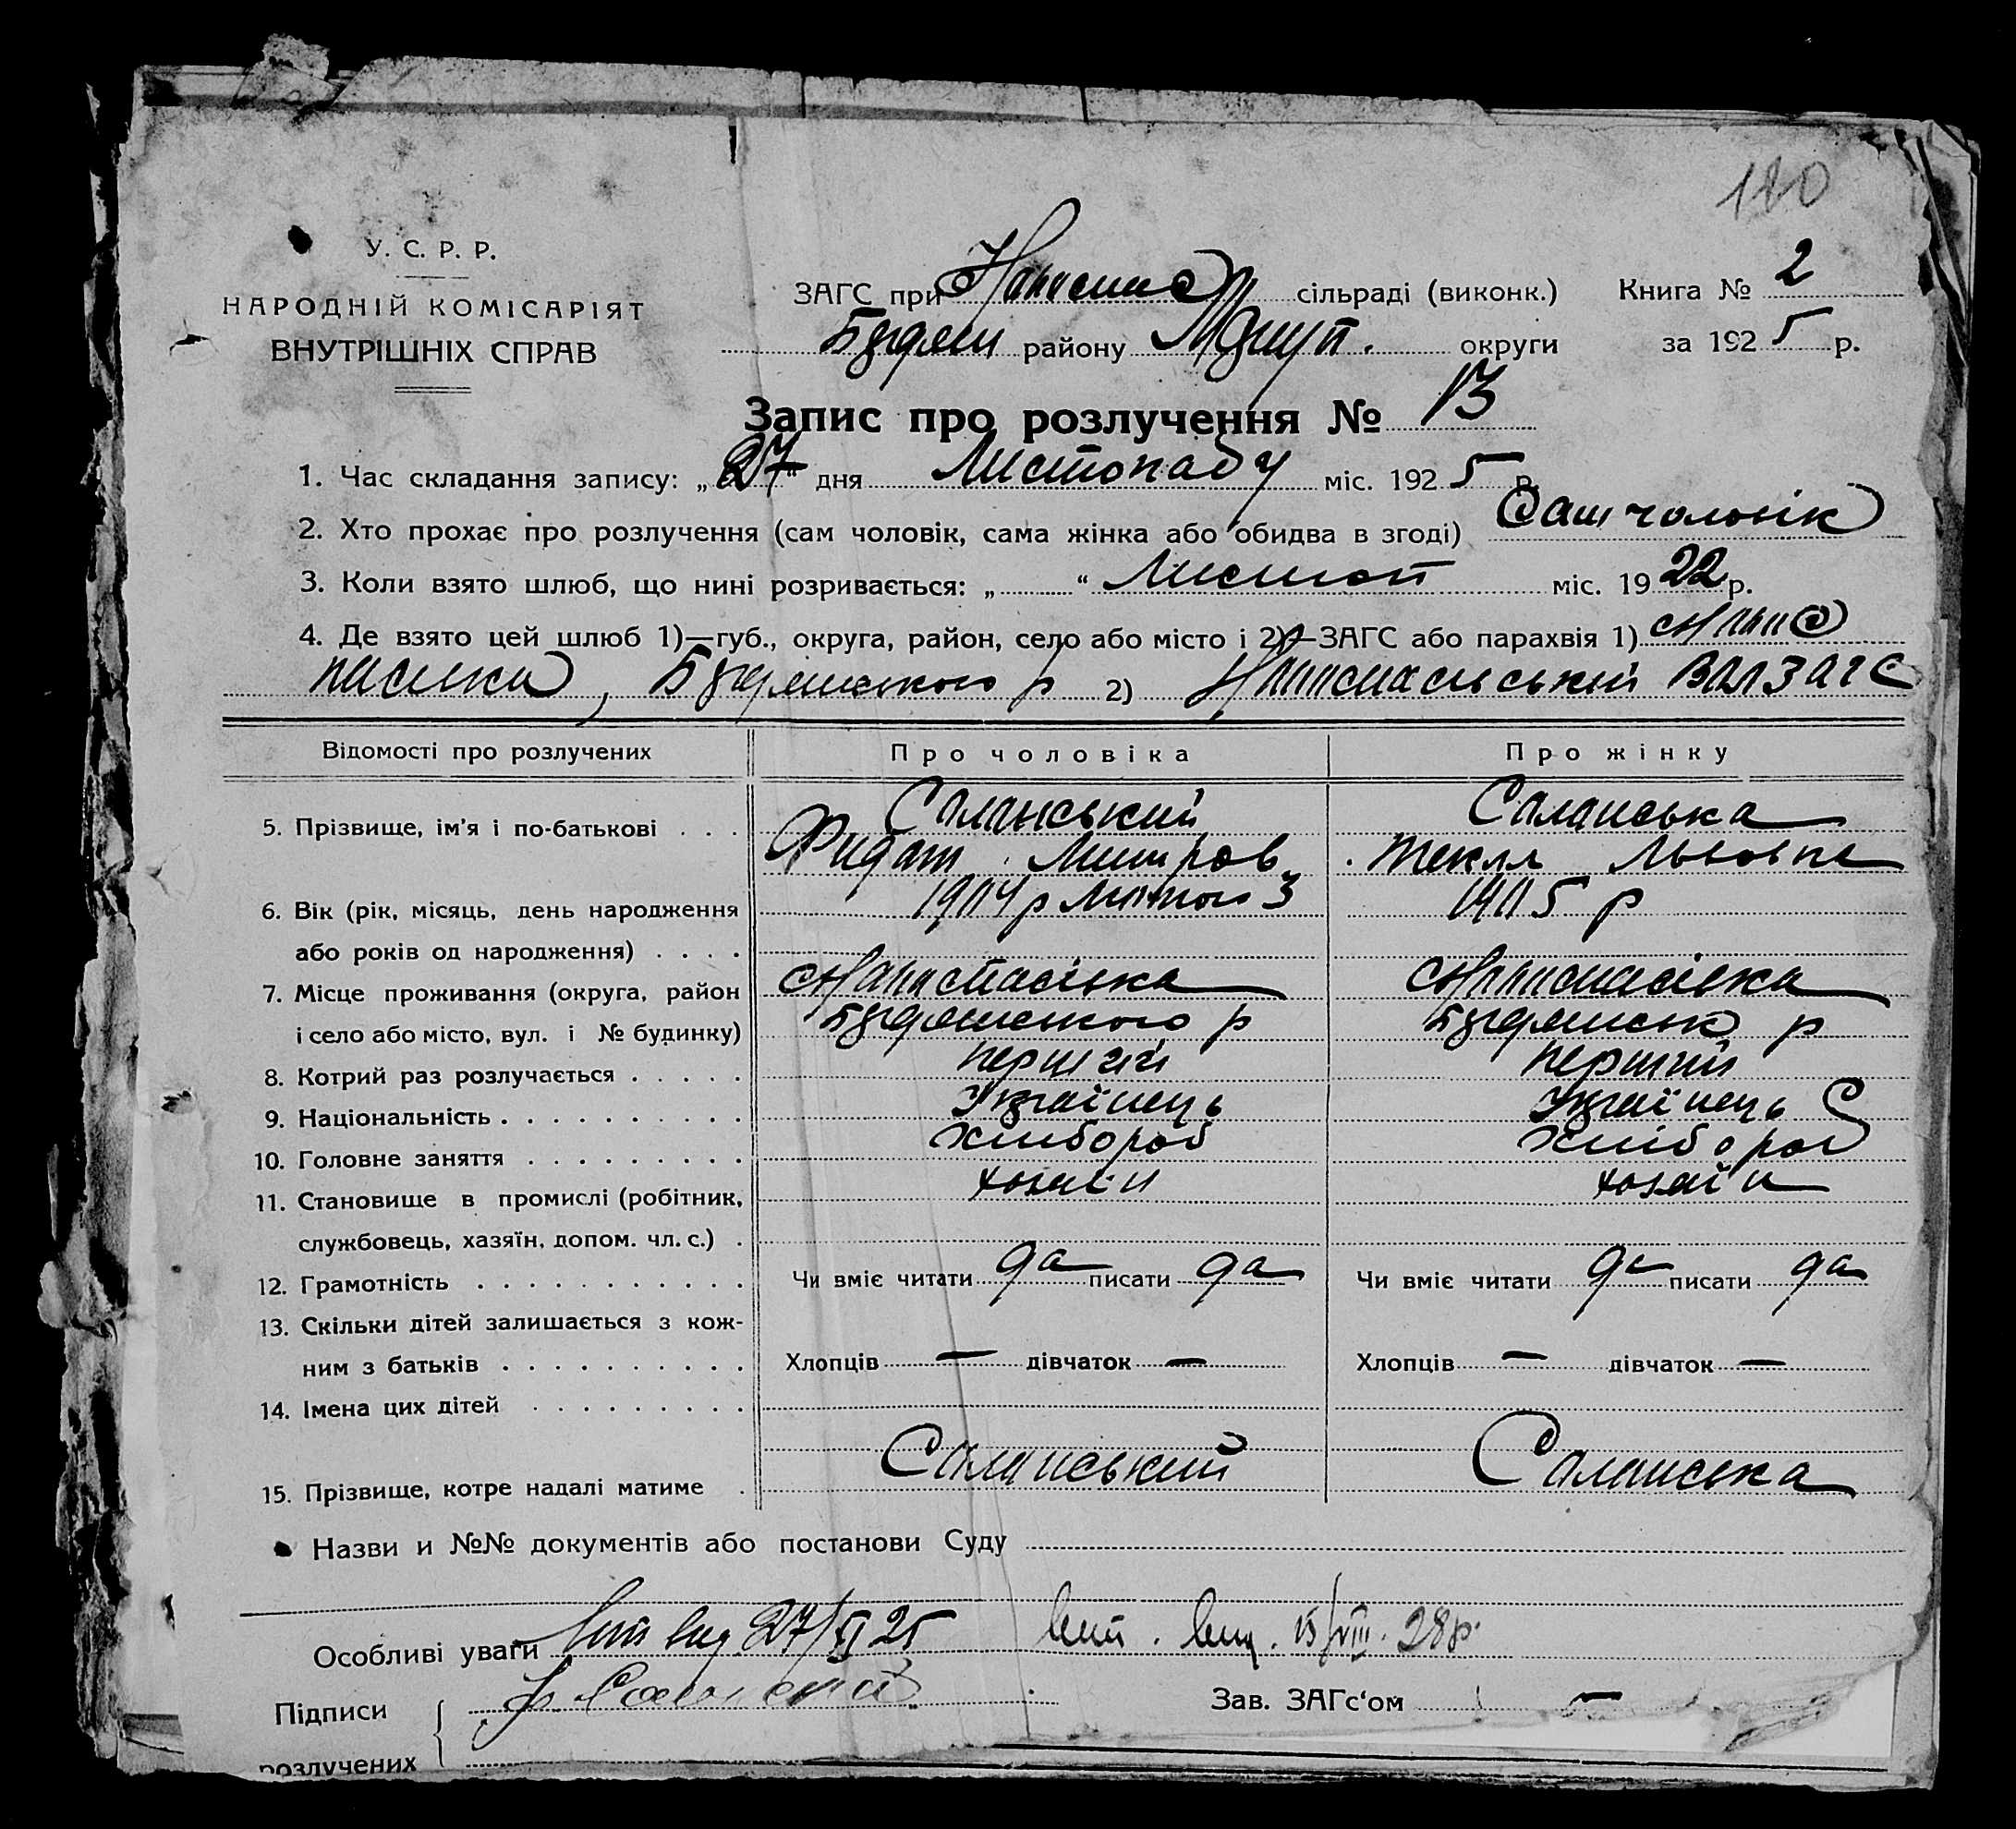 120
У. С. Р. Р.
НАРОДНІЙ КОМІСАРІЯТ
ВНУТРІШНІХ СПРАВ
ЗАГС при сільраді (виконк.) Книга № 2
району округи за 1925 р.
Запис про розлучення № 13
1. Час складання запису: „27“ дня Листопаду міс. 1925 р.
2. Хто прохає про розлучення (сам чоловік, сама жінка або обидва в згоді) Сам чоловік
3. Коли взято шлюб, що нині розривається: „ “ Листоп міс. 1922 р.
4. Де взято цей шлюб 1)—губ., округа, район, село або місто і 2)—ЗАГС або парахвія 1)
р 2) ВолЗагс
Відомості про розлучених Про чоловіка Про жінку
5. Прізвище, ім'я і по-батькові . . . Саланський Саланська
Митров Текля Львовна
6. Вік (рік, місяць, день народження 1904 р Лютого 3 1905 р
або років од народження) . . . .
7. Місце проживання (округа, район Напастасівка
і село або місто, вул. і № будинку) р р
8. Котрий раз розлучається . . . . . перший перший
9. Національність . . . . . . . . . . Українець Українець
10. Головне заняття . . . . . . . . . Хлибороб Хлібороб
11. Становище в промислі (робітник, хозяїн хозяїн
службовець, хазяїн, допом. чл. с.) .
12. Грамотність . . . . . . . . . . . Чи вміє читати да писати да Чи вміє читати да писати да
13. Скільки дітей залишається з кож-
ним з батьків . . . . . . . . . . Хлопців — дівчаток — Хлопців — дівчаток —
14. Імена цих дітей . . . . . . . . .
15. Прізвище, котре надалі матиме . Саланський Саланська
Назви и №№ документів або постанови Суду
Особливі уваги 27/XI 25 15/VIII. 28р.
Підписи Зав. ЗАГс'ом
розлучених